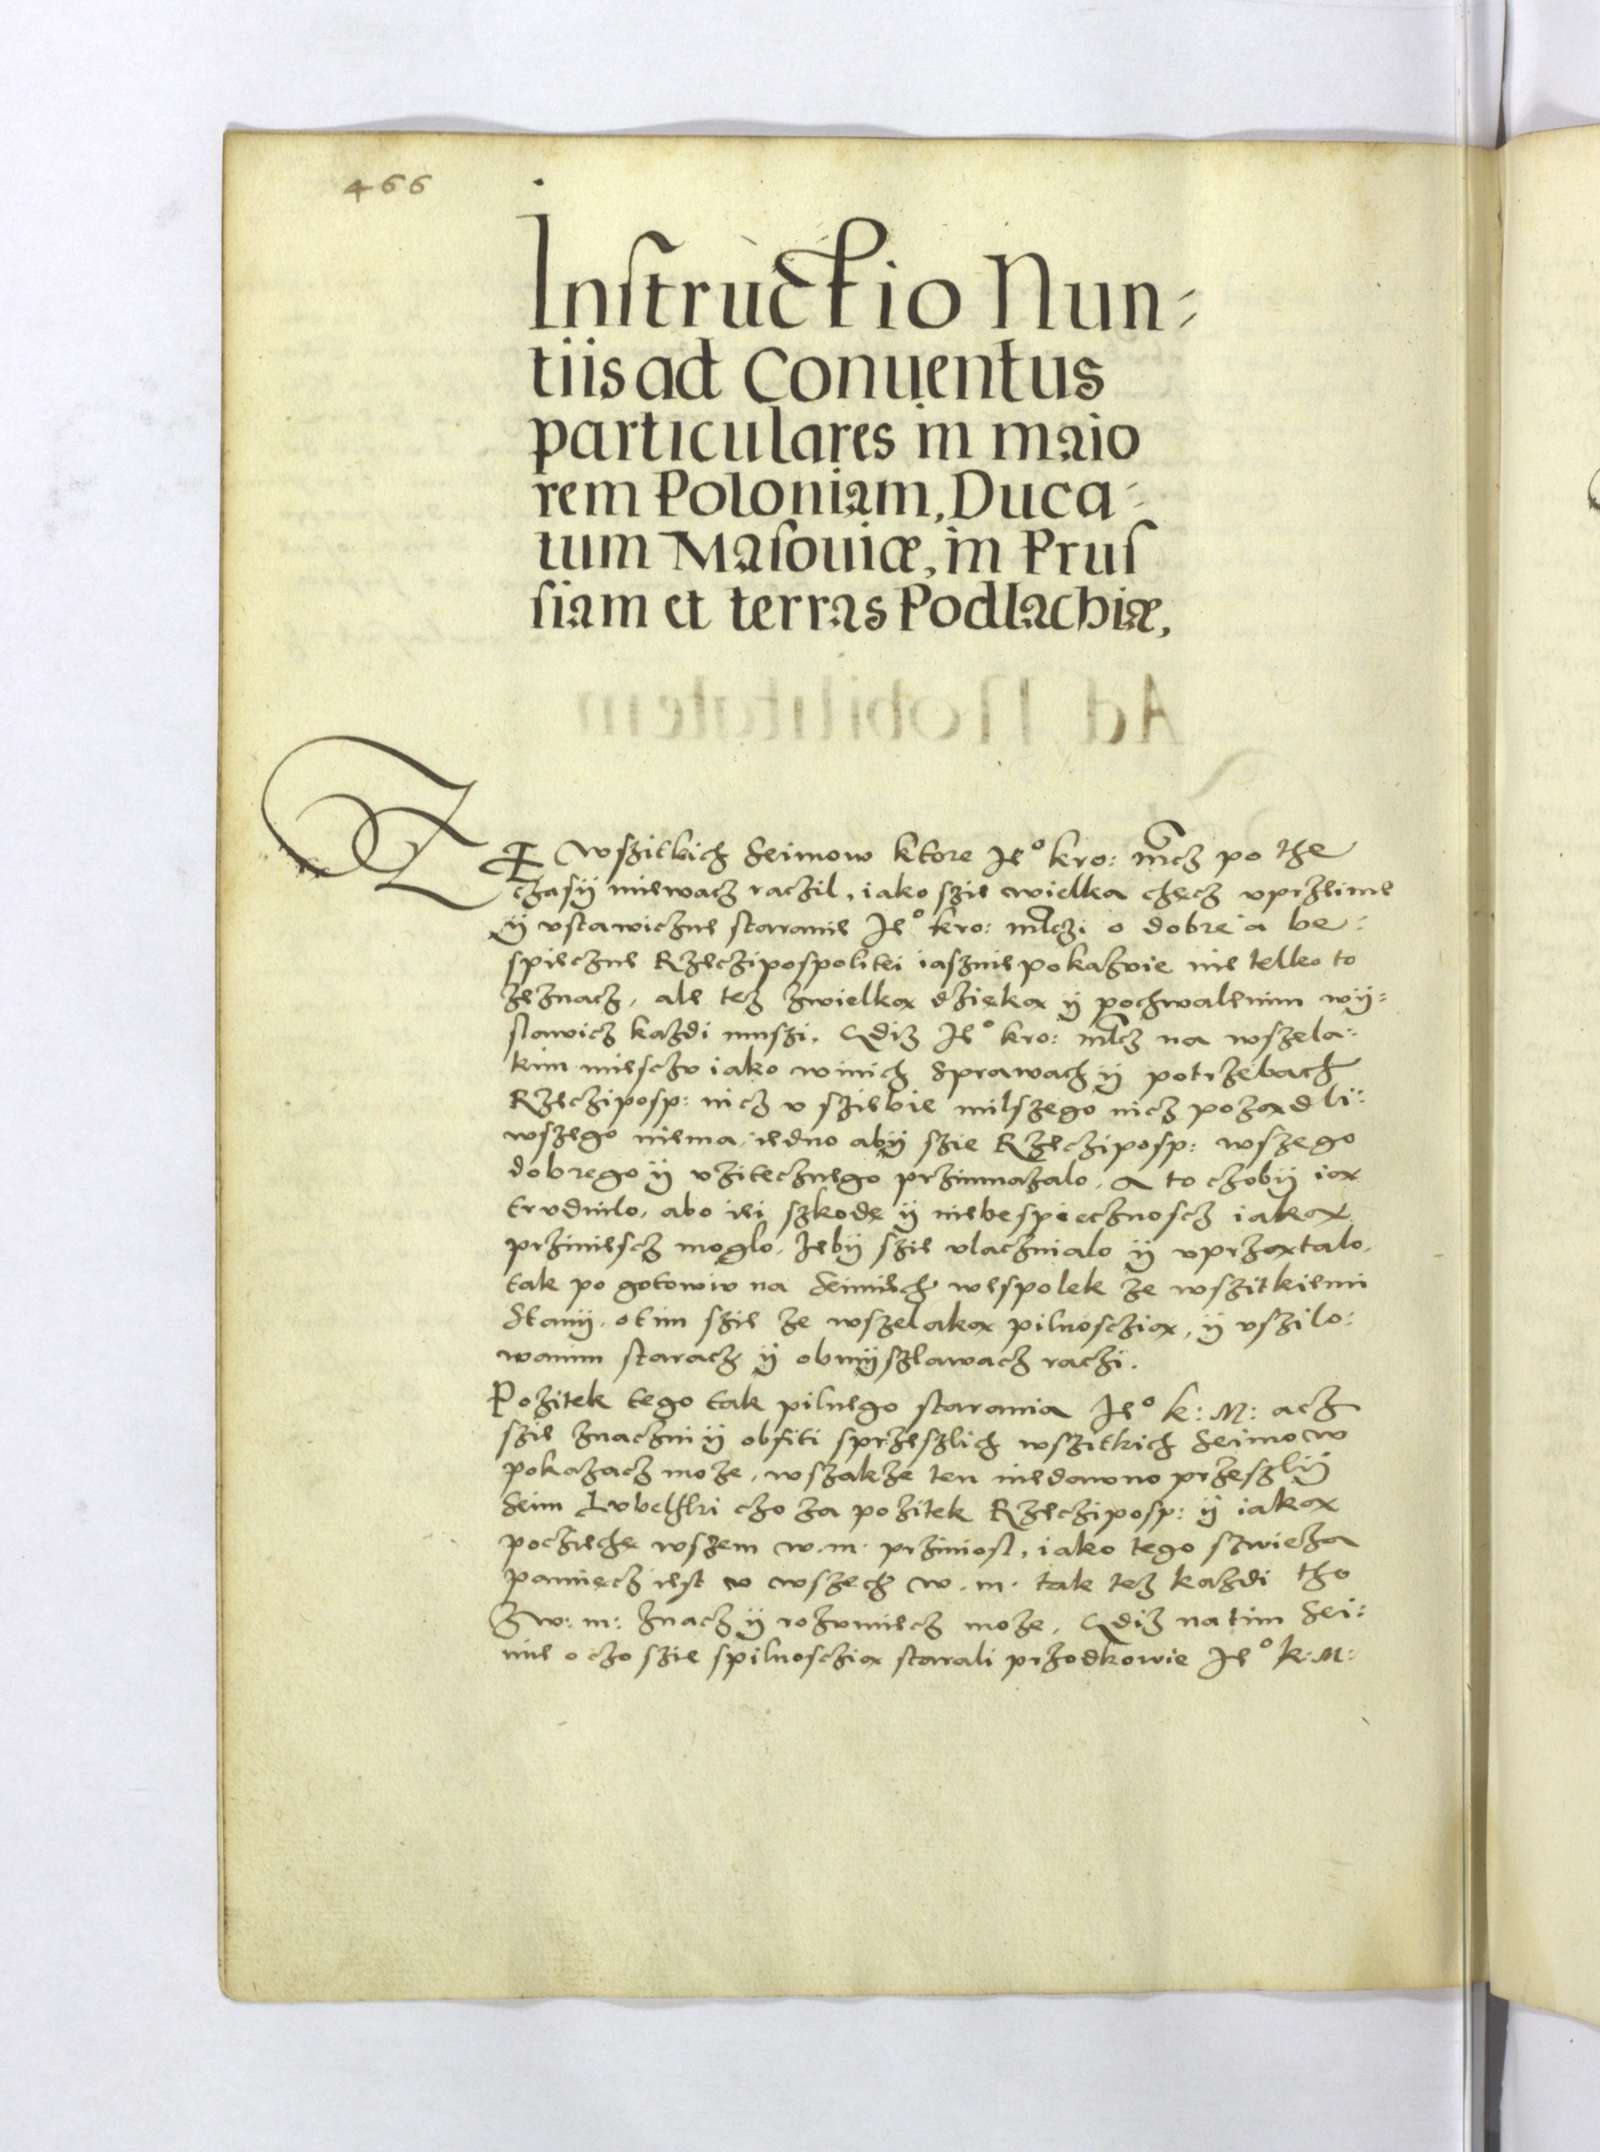 466
Instructio Nun-
tiis ad Conuentus
particulares in maio
rem Poloniam, Duca-
tum Masouiæ, in Prus
siam et terras Podlachiæ,
ZE Wszitkich Seimow ktore Je° kro: mcz po the
czasÿ miewacz raczil, iako szie wielka chęcz vprzeime
ÿ vstawiczne staranie Je° kro: mczi o dobre a be-
spieczne Rzeczipospolitei iasznie pokazuie nie telko to
zeznacz, ale tez zwielką dzięką ÿ pochwalenim wÿ-
slawicz kazdi muszi. Gdiz Je° kro: mcz na wszela-
kim miesczu iako winich Sprawach ÿ potrzebach
Rzecziposp: nicz v sziebie milszego nicz pożądli-
wszego niema, iedno abÿ szie Rzecziposp: wszego
dobrego ÿ vzitecznego przimnazalo, a to czobÿ ią
trudnilo, abo iei szkodę ÿ niebespiecznoscz iaką
prziniescz moglo, Zebÿ szie vlacznialo ÿ vprzątalo.
tak po gotowiu na Seimiech wespolek ze wszitkiemi
Stanÿ, otim szie ze wszelaką pilnosczią, ÿ vszilo-
wanim staracz ÿ obmÿszlawacz raczi.
Pozitek tego tak pilnego starania Je° k: M: acz
szie znaczni ÿ obfiti sprzeszlich wszitkich Seimow
pokazacz moze, wszakze ten niedawno przeszlÿ
Seim Lubelski czo za pozitek Rzecziposp: ÿ iaką
pocziechę wszem w. m. prziniosl, iako tego szwieza
pamięcz iest v wszech w. m. tak tez kazdi tho
Zw: m: znacz ÿ rozumiecz moze, Gdiz na tim Sei-
mie o czo szie spilnosczią starali przodkowie Je° k: M: